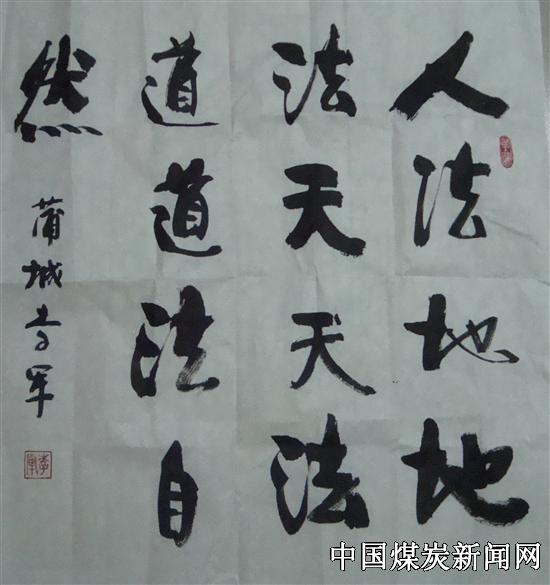 人法地地
法天天法
道道法自
然
蒲城李军
中国煤炭新闻网